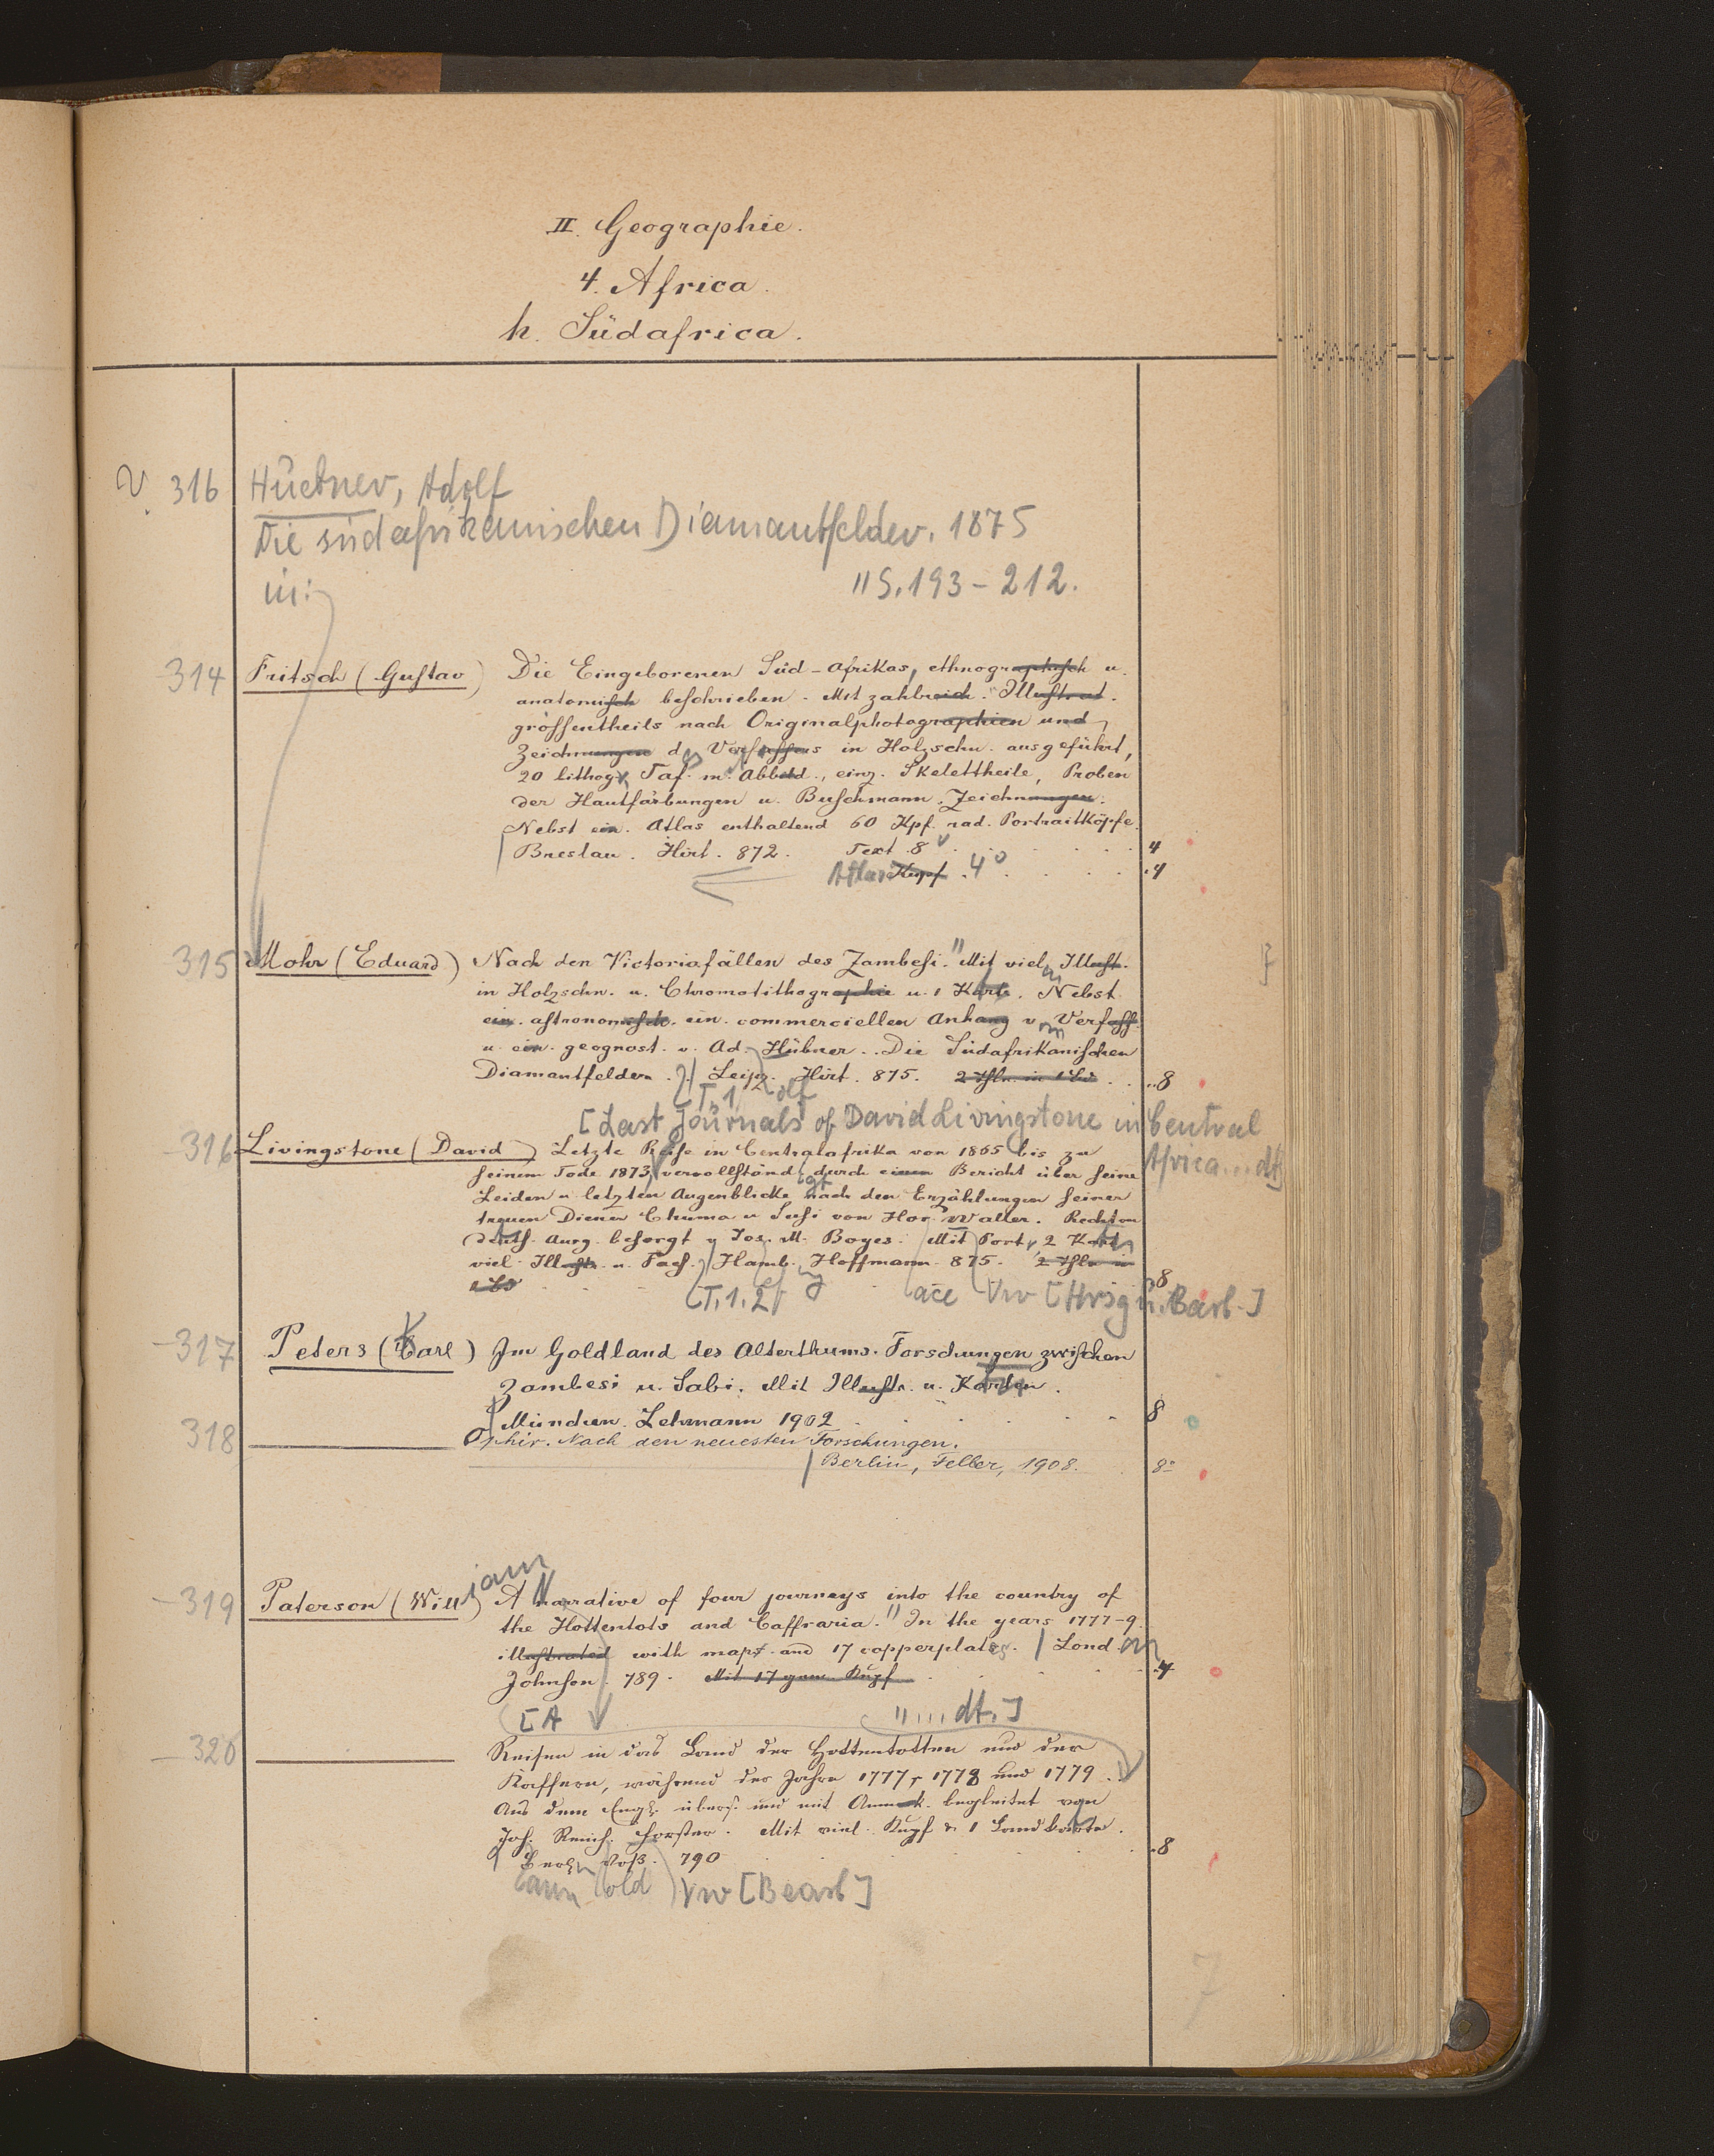 II. Geographie.
4. Africa.
h. Südafrica.
V 316 Hübner, Adolf
Die südafrikanischen Diamantfelder. 1875
in: "S. 193-212.
314 Fritsch (Gustav) Die Eingeborenen Süd-Afrikas, ethnographisch u.
anatomisch beschrieben. Mit zahlreich. Illustrat.
grössentheils nach Originalphotographien und
Zeichnungen des Verfassers in Holzschn. ausgeführt,
20 lithogr. Taf. m. Abbild., einz. Skelettheile, Proben
der Hautfärbungen u. Buschmann. Zeichnungen.
Nebst ein. Atlas enthaltend 60 Kpf. rad. Portraitköpfe.
Breslau. Hirt. 872. Text 8 4
Atlas Kupf. 4° 4
315 Mohr (Eduard) Nach den Victoriafällen des Zambesi." Mit vielen Illust.
in Holzschn. u. Chromolithographie u. 1 Karte. Nebst
ein. astronomisch. ein. commerciellen Anhang vom Verfass.
u. ein. geognost. v. Ad. Hübner. Die Südafrikanischen
Diamantfelder. Leipz. Hirt. 875. 2 Thle. in 1 Bd. 8
[T. 1 olf
[Last Journals of David Livingstone in Central
316 Livingstone (David) Letzte Reise in Centralafrika von 1865 bis zu
Africa... dt]
seinem Tode 1873, vervollständigt durch einen Bericht über seine
Leiden u. letzten Augenblicke nach den Erzählungen seiner
treuen Diener Chuma u. Susi von Hor. Waller.
deuts. Ausg. besorgt v. Jos. M. Boyes. Mit Portr., 2 Karten
viel. Illustr. u. Facs. Hamb. Hoffmann. 875. 2 Thle. in
1 Bd. 8
[T. 1. 2] ace Vw [Hrsg u. Bearb.]
317 Peters (Karl) Im Goldland des Alterthums. Forschungen zwischen
Zambesi u. Sabi. Mit Illustr. u. Karten.
München. Lehmann 1902 8
318 Ophir. Nach den neuesten Forschungen.
Berlin, Feller, 1908. 8°
319 Paterson (William) A Narrative of four journeys into the country of
the Hottentots and Caffraria." In the years 1777-9
illustrated with maps and 17 copperplates. London
Johnson. 789. Mit 17 gem. Kupf. 4
[A "... dt.]
320 Reisen in das Land der Hottentotten und der
Kaffern, während der Jahre 1777, 1778 und 1779.
Aus dem Engl. übers. und mit Anmerk. begleitet von
Joh. Reinh. Forster. Mit viel. Kupf. & 1 Landkarte.
Berlin Voß. 790 8
ann old Vw [Bearb]
7